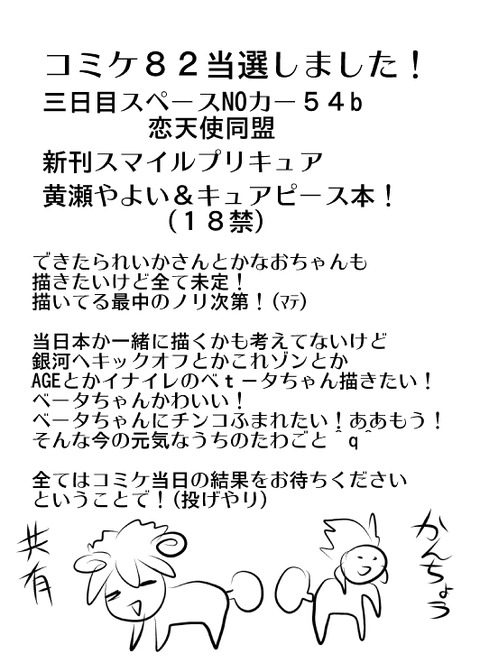 コミケ８２当選しました！
三日目スペースNOカー５４b
恋天使同盟
新刊スマイルプリキュア
黄瀬やよい＆キュアピース本！
（１８禁）
できたられいかさんとかなおちゃんも
描きたいけど全て未定！
描いてる最中のノリ次第！(ﾏﾃ)
当日本か一緒に描くかも考えてないけど
銀河へキックオフとかこれゾンとか
AGEとかイナイレのベｔータちゃん描きたい！
ベータちゃんかわいい！
ベータちゃんにチンコふまれたい！ああもう！
そんな今の元気なうちのたわごと＾q＾
全てはコミケ当日の結果をお待ちください
ということで！(投げやり)
共有
かんちょう